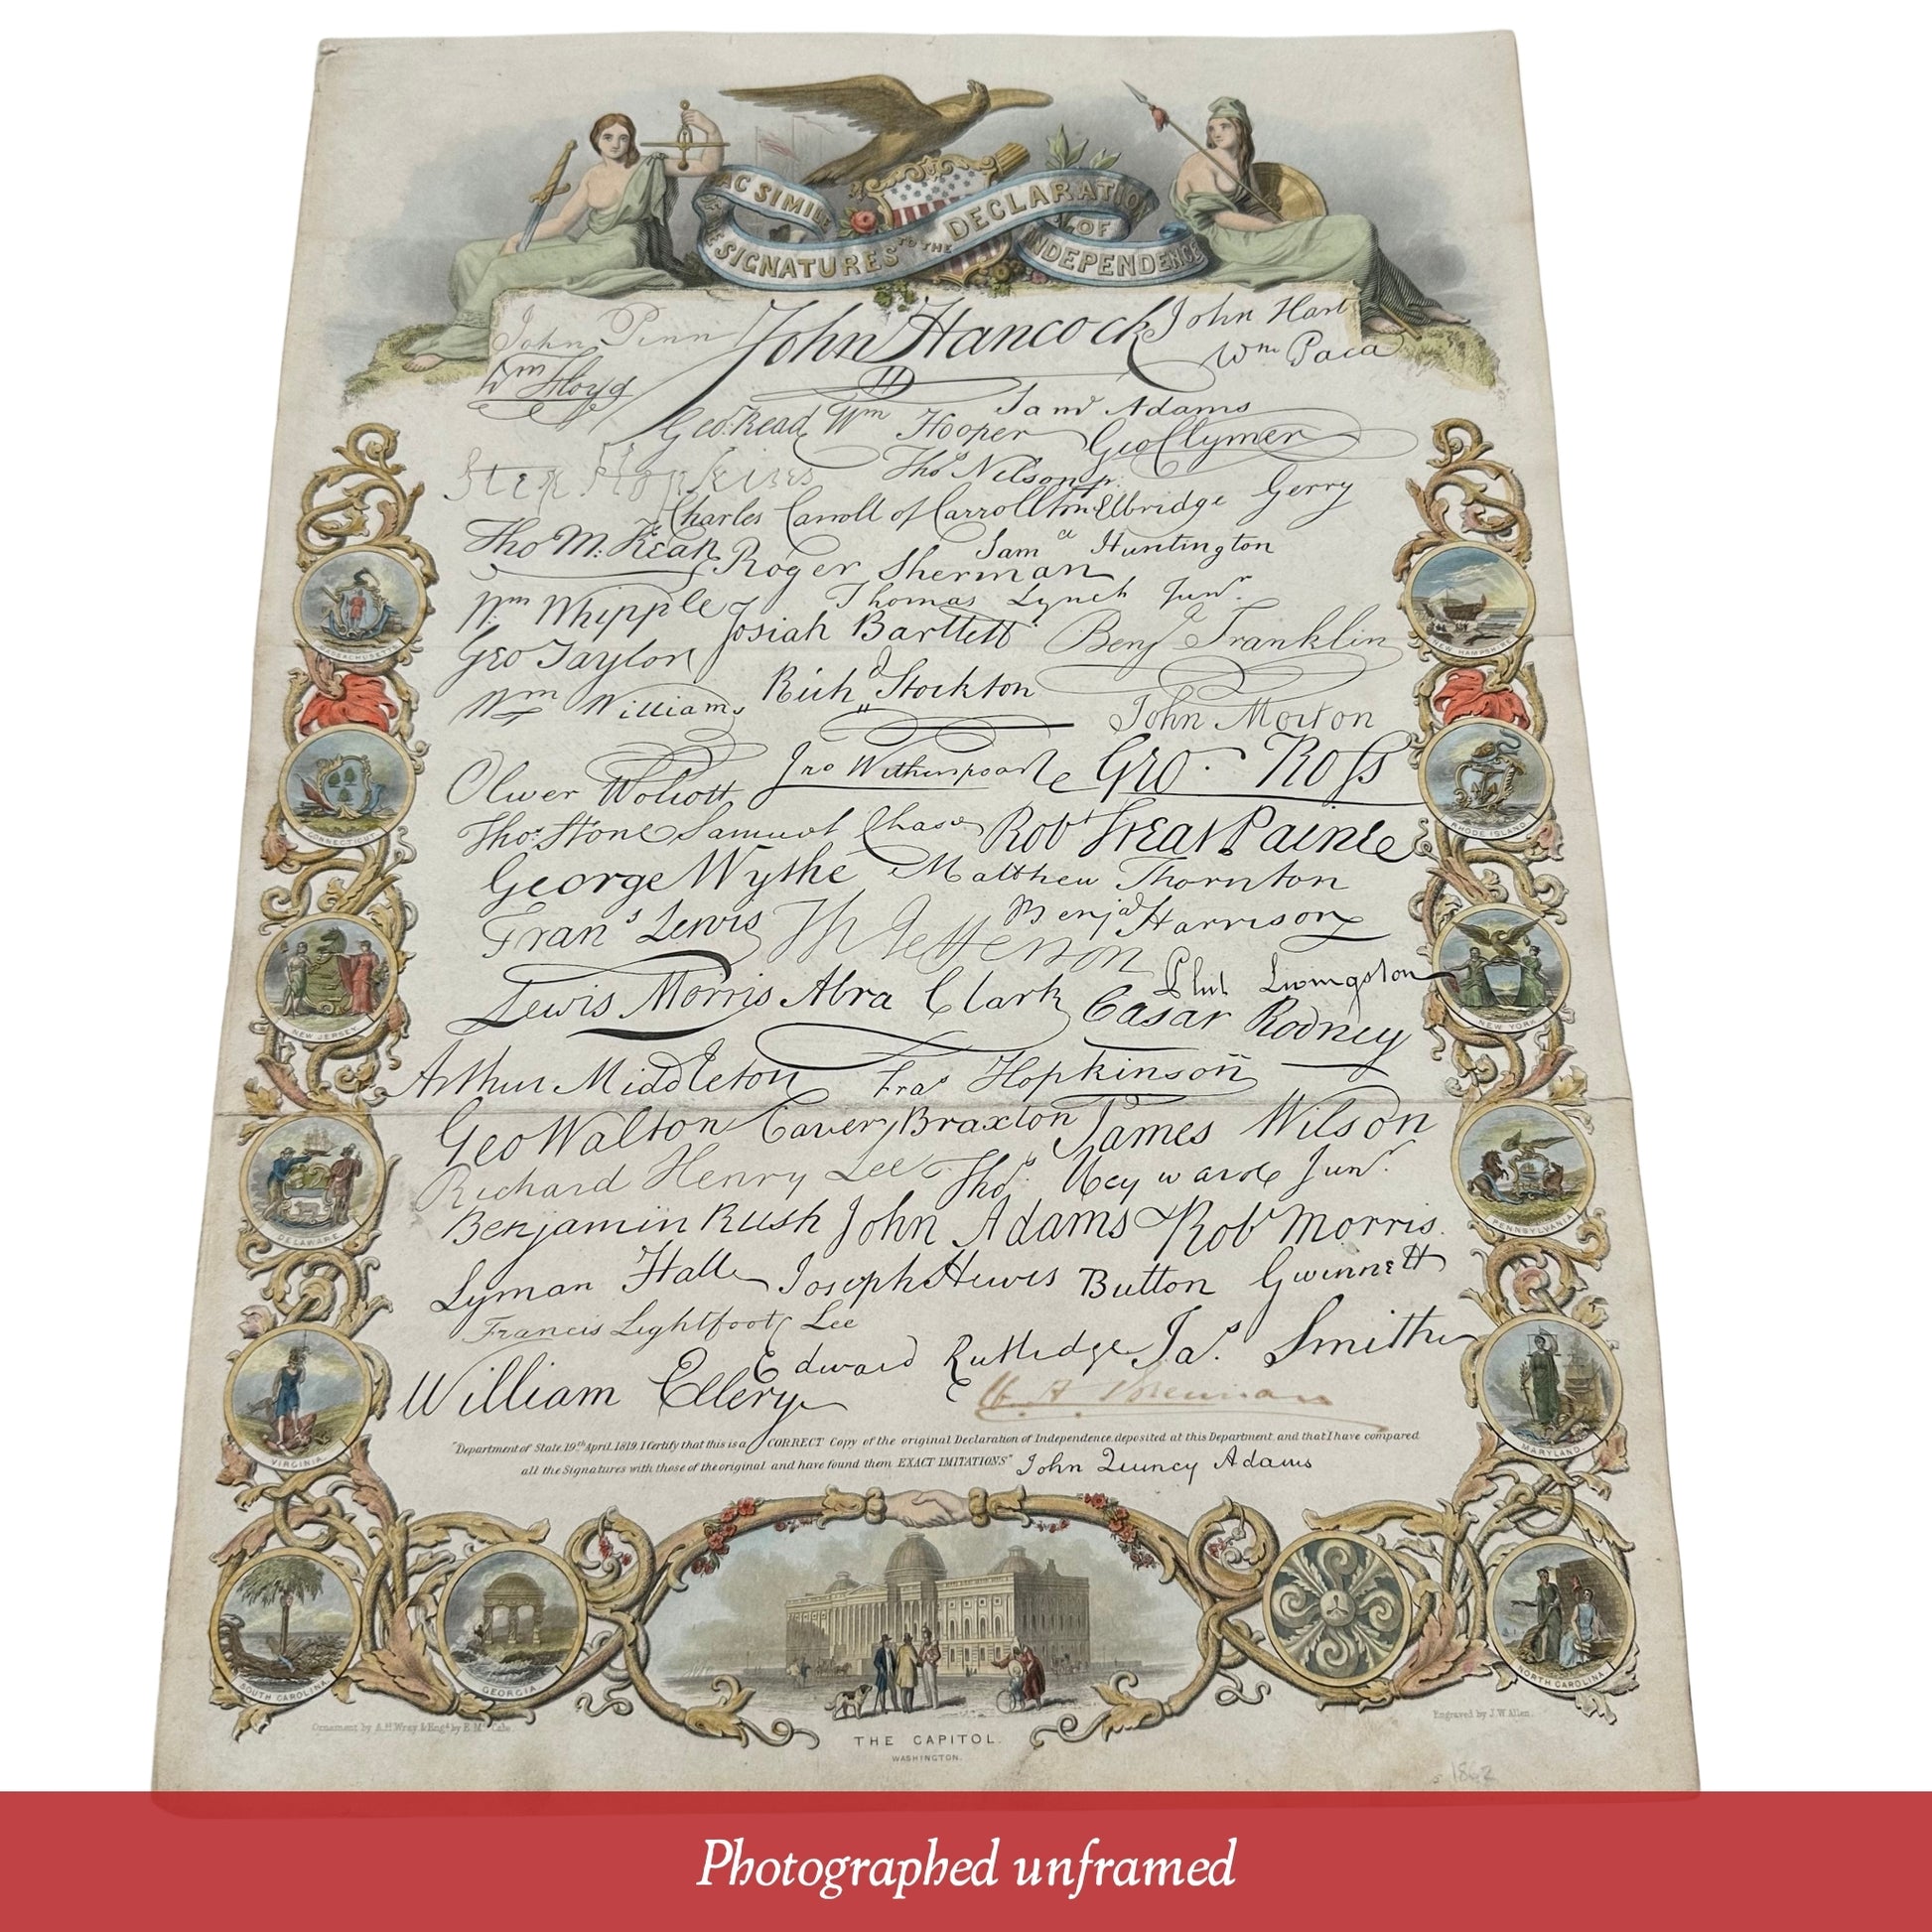 FAC SIMILE
OF THE
SIGNATURES TO THE DECLARATION
OF
INDEPENDENCE
John Penn John Hancock John Hart
Wm Floyd Wm Paca
Saml Adams
Geo. Read Wm Hooper Geo Clymer
Step Hopkins Thos Nelson jr.
Charles Carroll of Carrollton Elbridge Gerry
Tho M: Kean Saml Huntington
Roger Sherman
Wm Whipple Thomas Lynch Junr.
Josiah Bartlett Benj Franklin
Geo Taylor
Richd Stockton
Wm Williams John Morton
Oliver Wolcott Jno Witherspoon Geo. Ross
Thos. Stone Samuel Chase Robt Treat Paine
George Wythe Matthew Thornton
Frans Lewis Th Jefferson Benja Harrison
Lewis Morris Abra Clark Phil Livingston
Cæsar Rodney
Arthur Middleton Fras Hopkinson
Geo Walton Carter Braxton James Wilson
Richard Henry Lee Thos. Heyward Junr.
Benjamin Rush John Adams Robt Morris.
Lyman Hall Joseph Hewes Button Gwinnett
Francis Lightfoot Lee
Edward Rutledge Jas. Smith
William Ellery
"Department of State, 19th April, 1819. I Certify that this is a CORRECT Copy of the original Declaration of Independence, deposited at this Department, and that I have compared
all the Signatures with those of the original and have found them EXACT IMITATIONS" John Quincy Adams
MASSACHUSETTS
NEW HAMPSHIRE
CONNECTICUT
RHODE ISLAND
NEW JERSEY
NEW YORK
DELAWARE
PENNSYLVANIA
VIRGINIA
MARYLAND
SOUTH CAROLINA
GEORGIA
NORTH CAROLINA
Ornament by A.H. Wray & Engd. by E. Mc Cabe.
Engraved by J.W. Allen.
THE CAPITOL.
WASHINGTON.
1862
Photographed unframed